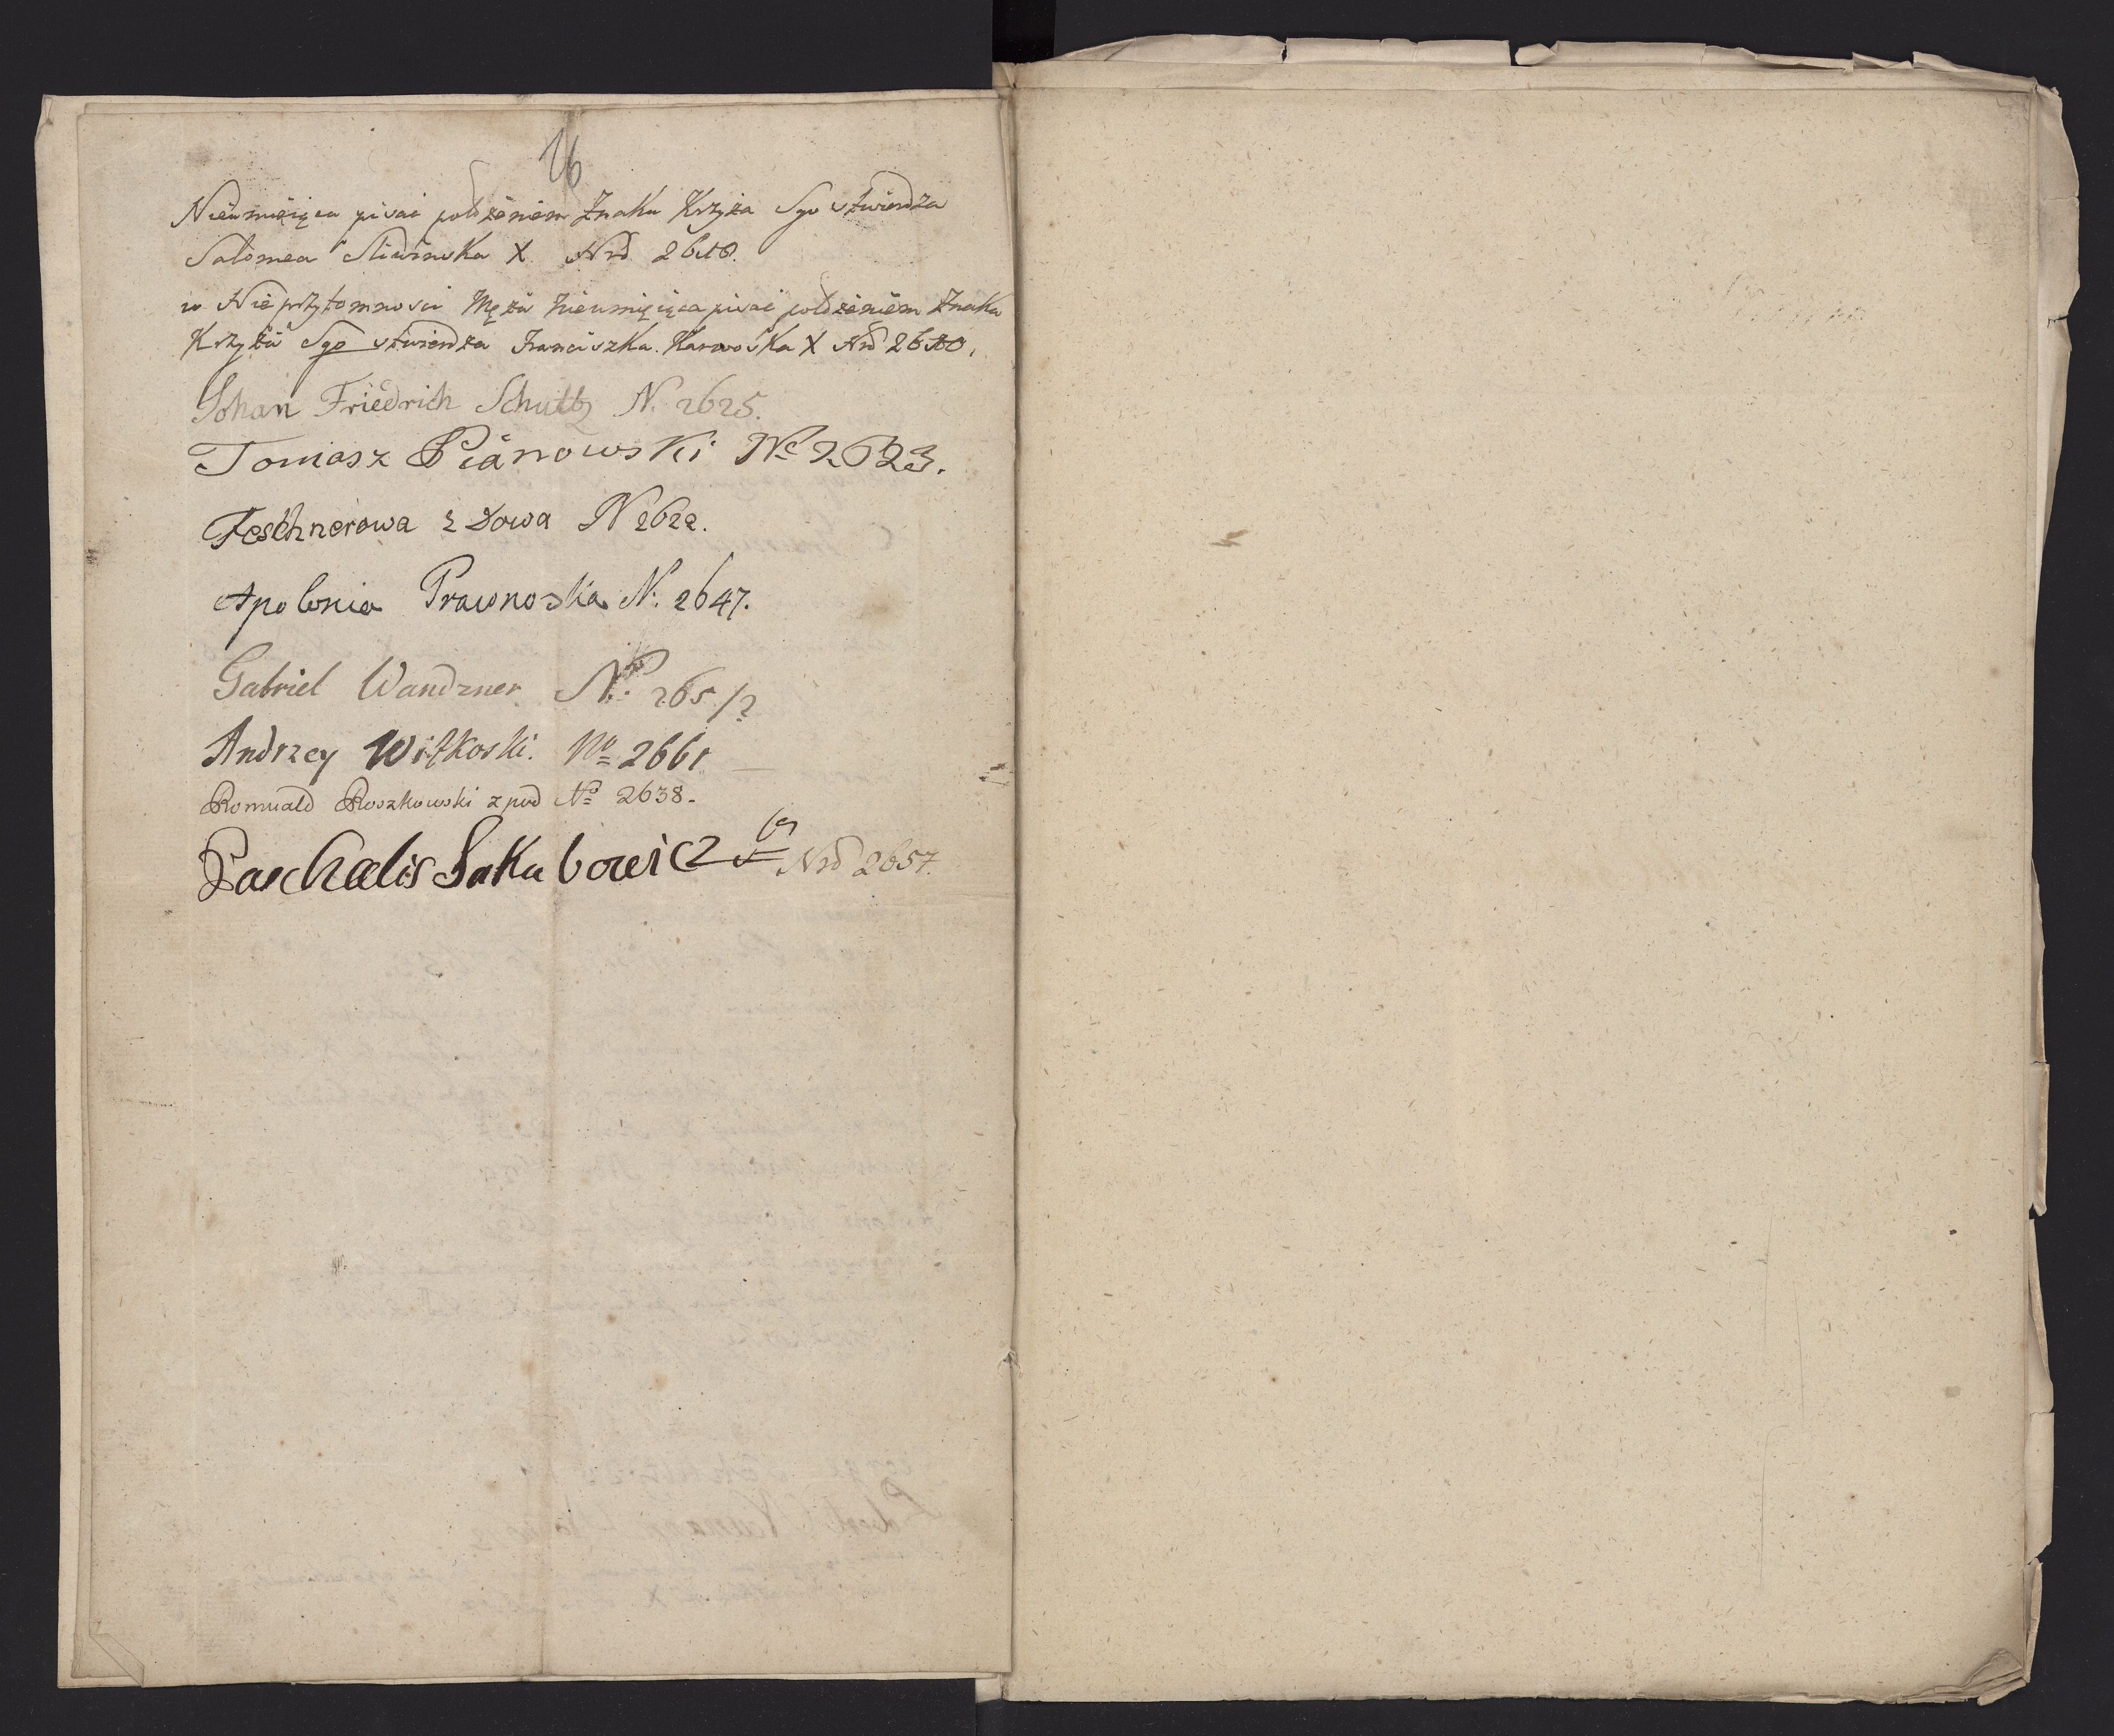 16
Nieumieiąca pisać położeniem Znaku Krzyża Sgo stwierdza
Salomea Sliwinska X Nrd 2610.
w Nieprzytomnosci Męża nieumięiąca pisać położeniem Znaku
Krzyża Sgo stwierdza Franciszka Karwoska X Nrd
Johan Friedrich Schultz N. 2625.
Tomasz Pianowski No 2623.
Feschnerowa zdowa N 2622.
Apolonia Prawnoska N. 2647.
Gabriel Wandzner No 265/2
Andrzey Witkoski. No 2661
Romuald Roszkowski z pod No 2638.
Paschalis Jakubowicz Nrd 2657.